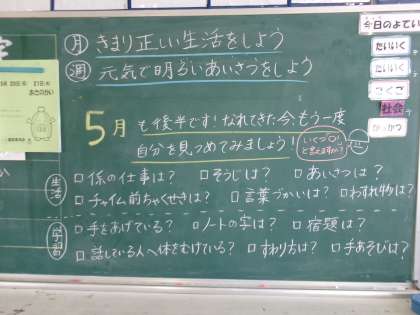 月 きまり正しい生活をしよう
週 元気で明るいあいさつをしよう
5月も後半です!なれてきた今、もう一度
自分を見つめてみましょう!
いくつ○と言えますか?
生活 □係の仕事は? □そうじは? □あいさつは?
□チャイム前ちゃくせきは? □言葉づかいは? □わすれ物は?
学習 □手をあげている? □ノートの字は? □宿題は?
□話している人へ体をむけている? □すわり方は? □手あそびは?
今日のよてい
たいいく
たいいく
こくご
社会
がっかつ
あさのかい